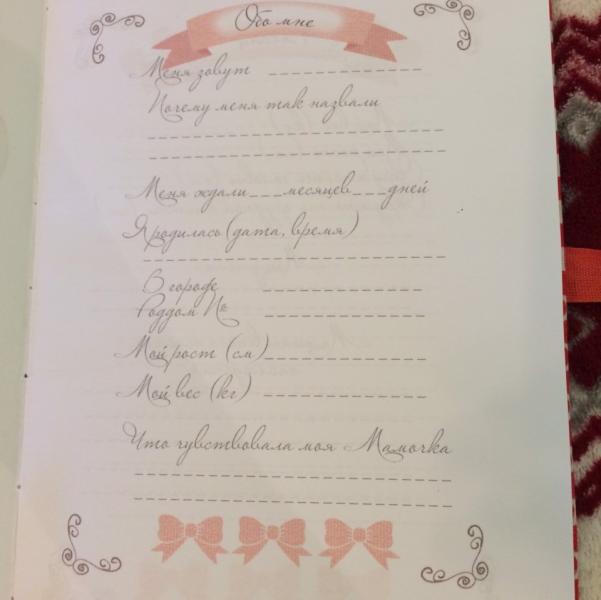 Обо мне
Меня зовут _______________
Почему меня так назвали
_____________________________
_____________________________
Меня ждали___месяцев___дней
Я родилась (дата, время)
_____________________________
В городе _______________
Роддом № _______________
Мой рост (см)_______________
Мой вес (кг) _______________
Что чувствовала моя Мамочка
_____________________________
_____________________________